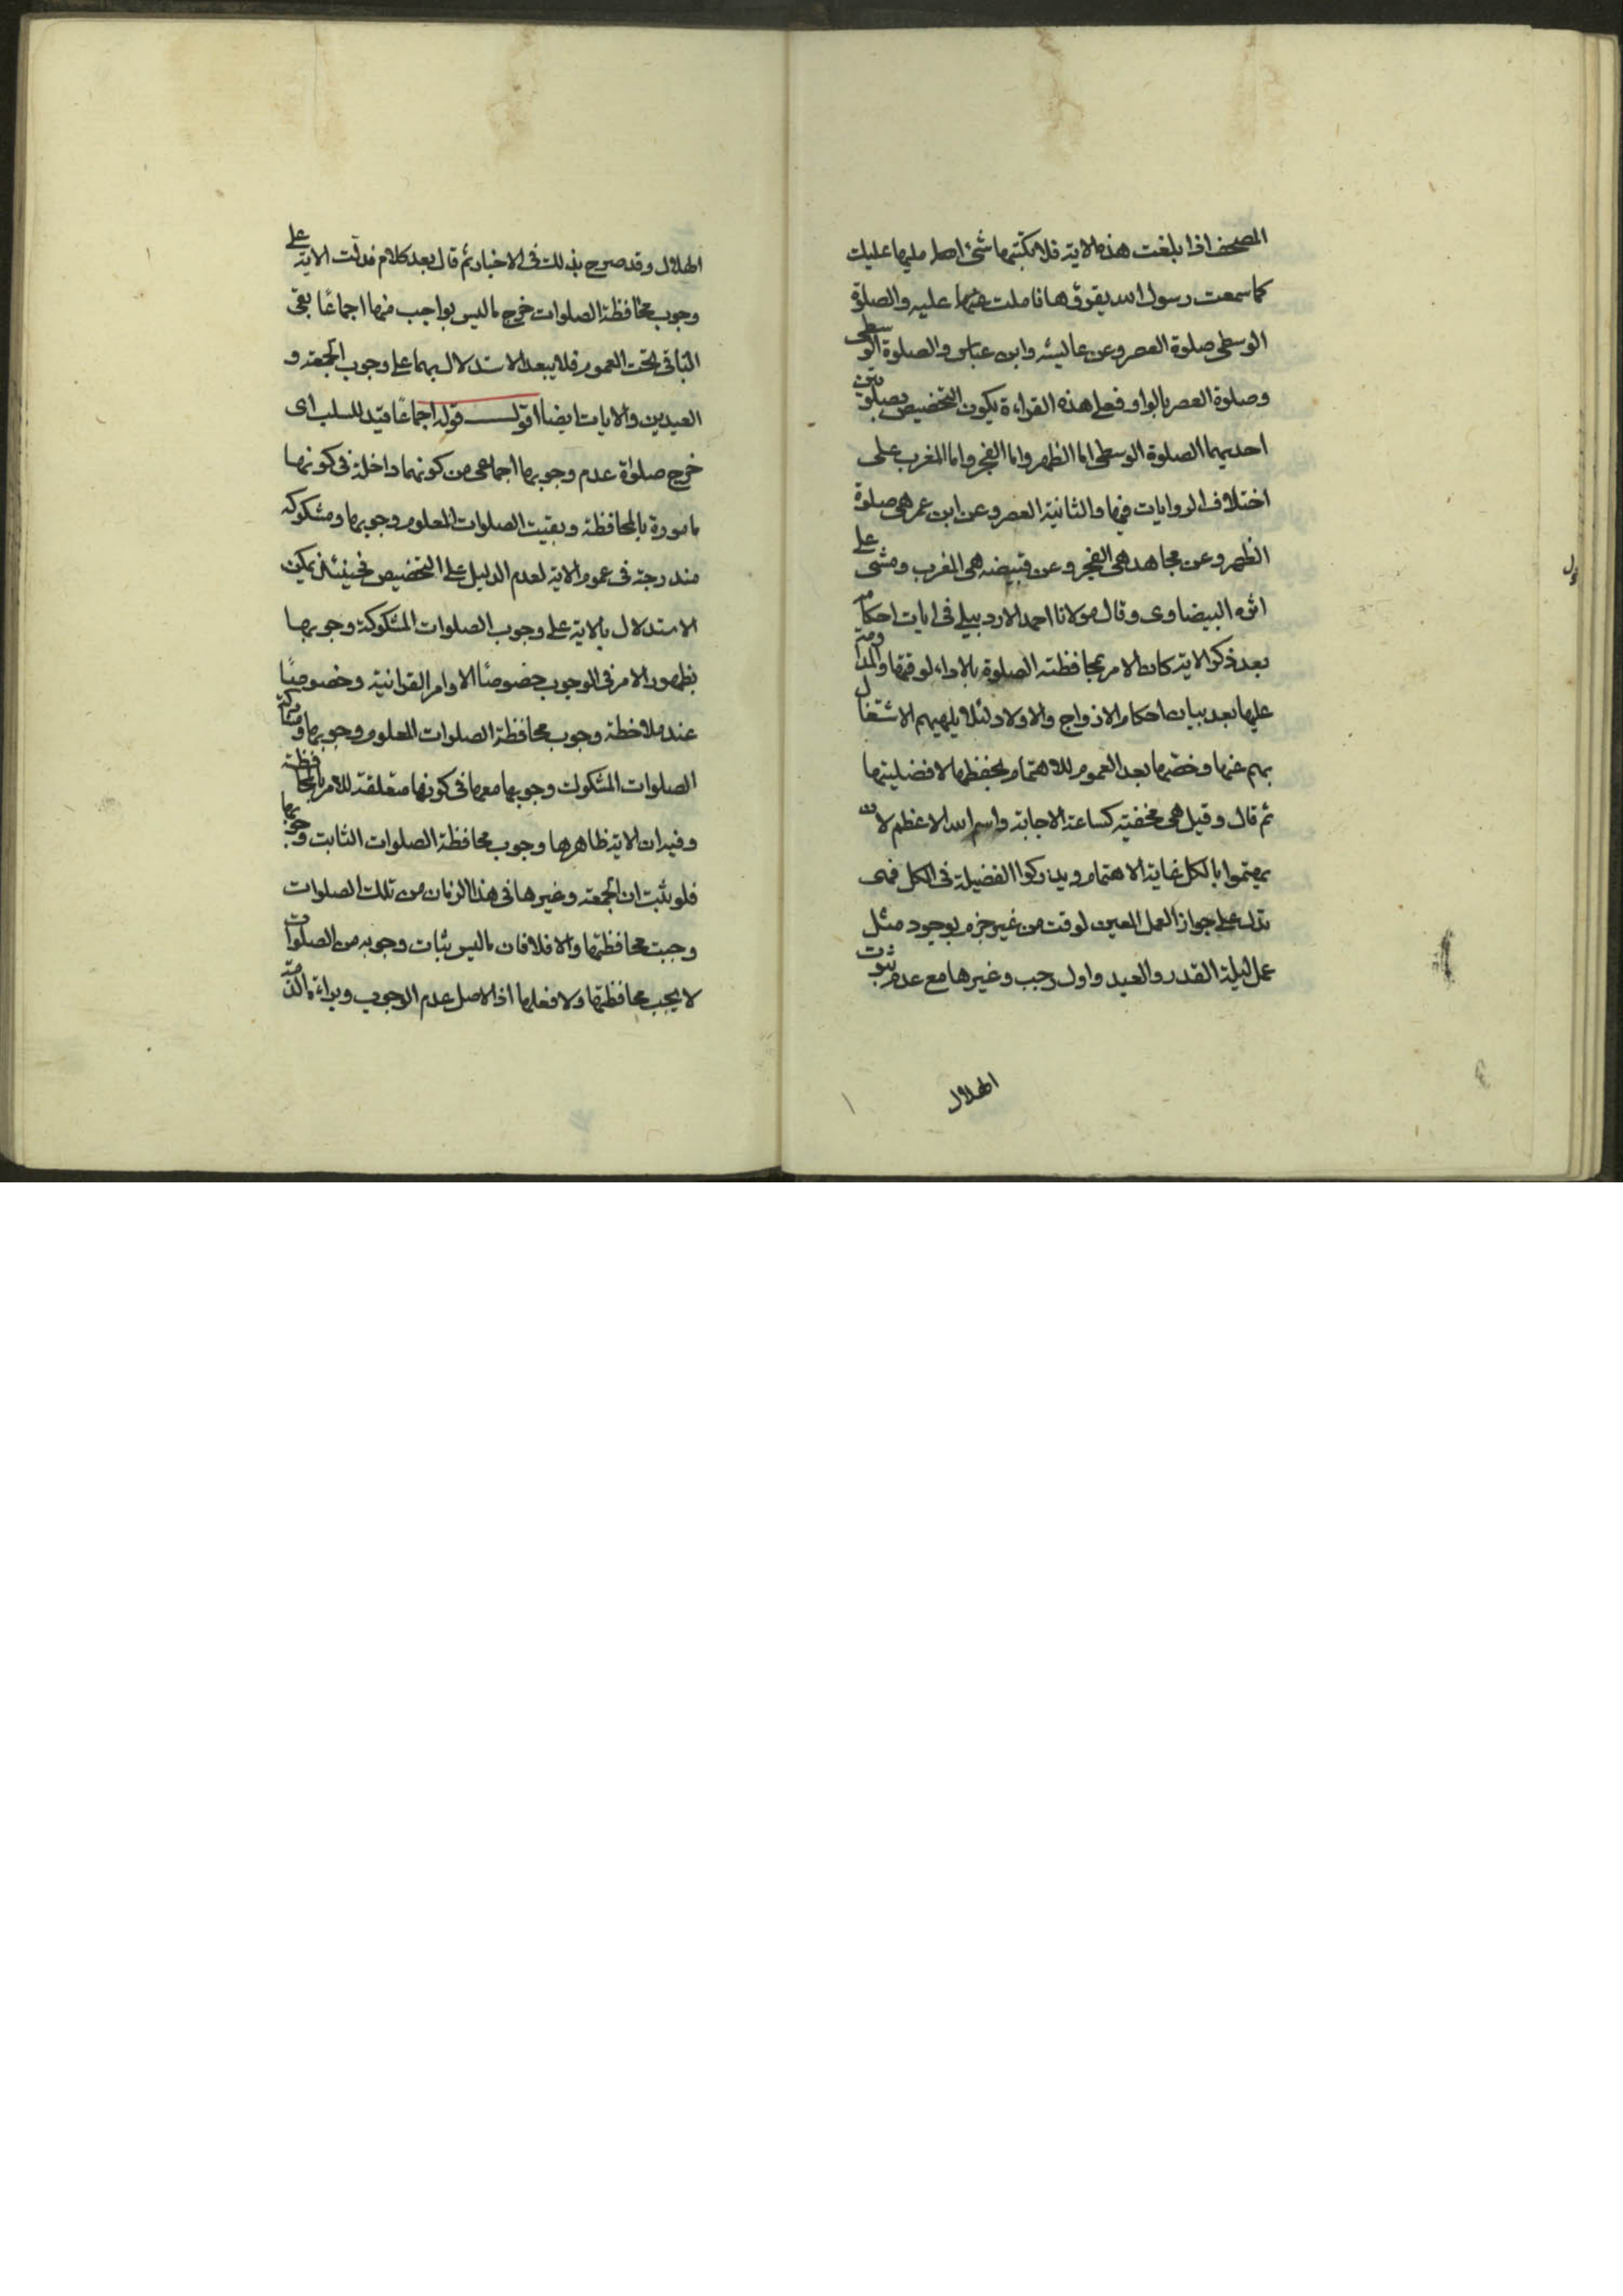 المصحف اذا بلغت هذه الاية فلا تكتبها شئ املها عليك
كما سمعت رسول الله يقرؤها فاملت عليه والصلوة
الوسطى صلوة العصر وعن عايشه وابن عباس والصلوة الوسطى
وصلوة العصر بالواو فعلى هذه القراءة يكون التخصيص بصلوتين
احديهما الصلوة الوسطى اما الظهر واما الفجر واما المغرب على
اختلاف الروايات فيها والثانية العصر وعن ابن عمر هى صلوة
الظهر وعن مجاهد هى الفجر وعن قبيضه هى المغرب ومشى على
اثره البيضاوى وقال مولانا احمد الاردبيلى فى ايات احكامه
بعد ذكر الاية كان الامر بمحافظة الصلوة بالاداء لوقتها والمداومة
عليها بعد بيان احكام الازواج والاولاد لئلا يلهيهم الاشتغال
بهم عنها وخصها بعد العموم للاهتمام بحفظها لافضليتها
ثم قال وقيل هى مخفية كساعة الاجابة واسم الله الاعظم لان
يهتموا بالكل غاية الاهتمام ويدركوا الفضيلة فى الكل فهى
تدل على جواز العمل المعين لوقت من غير جزم بوجوده مثل
عمل ليلة القدر والعيد واول رجب وغيرها مع عدم ثبوت
الهلال
الهلال وقد صرح بذلك فى الاخبار ثم قال بعد كلام فدلت الاية على
وجوب محافظة الصلوات خرج ما ليس بواجب منها اجماعًا بقى
الباقى تحت العموم فلا يبعد الاستدلال بهما على وجوب الجمعة و
العيدين والايات ايضا اقول قوله اجماعًا قيد للسلب اى
خرج صلواة عدم وجوبها اجماعى من كونهما داخلة فى كونها
مامورة بالمحافظة وبقيت الصلوات المعلوم وجوبها ومشكوكه
مندرجة فى عموم الاية لعدم الدليل على التخصيص فحينئذ يمكن
الاستدلال بالاية على وجوب الصلوات المشكوكة وجوبها
بظهور الامر فى الوجوب خصوصًا الاوامر القرانية وخصوصًا
عند ملاحظة وجوب محافظة الصلوات المعلوم وجوبها ومشاركة
الصلوات المشكوك وجوبها معها فى كونها متعلقة للامر بالمحافظة
وفيه ان الاية ظاهرها وجوب محافظة الصلوات الثابت وجوبها
فلو ثبت ان الجمعة وغيرها فى هذا الزمان من تلك الصلوات
وجبت محافظتها والا فلا فان ما ليس بثابت وجوبه من الصلوات
لا يجب محافظتها ولا فعلها اذ الاصل عدم الوجوب وبراءة الذمة